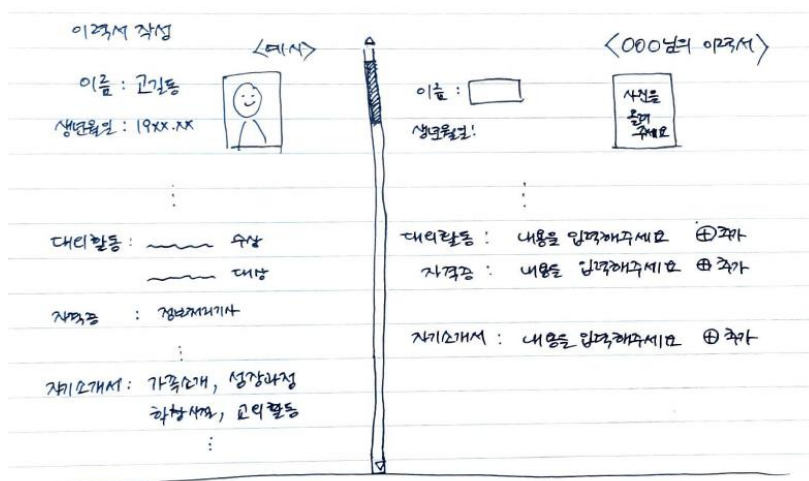 이력서 작성
<예시>
이름 : 고길동
생년월일 : 19xx.xx
대외활동 : 수상
대상
자격증 : 정보처리기사
자기소개서 : 가족소개, 성장과정
학창시절, 교외활동
<OOO님의 이력서>
이름 :
사진을
올려
주세요
생년월일:
대외활동 : 내용을 입력해주세요 ⊕추가
자격증 : 내용을 입력해주세요 ⊕추가
자기소개서 : 내용을 입력해주세요 ⊕추가